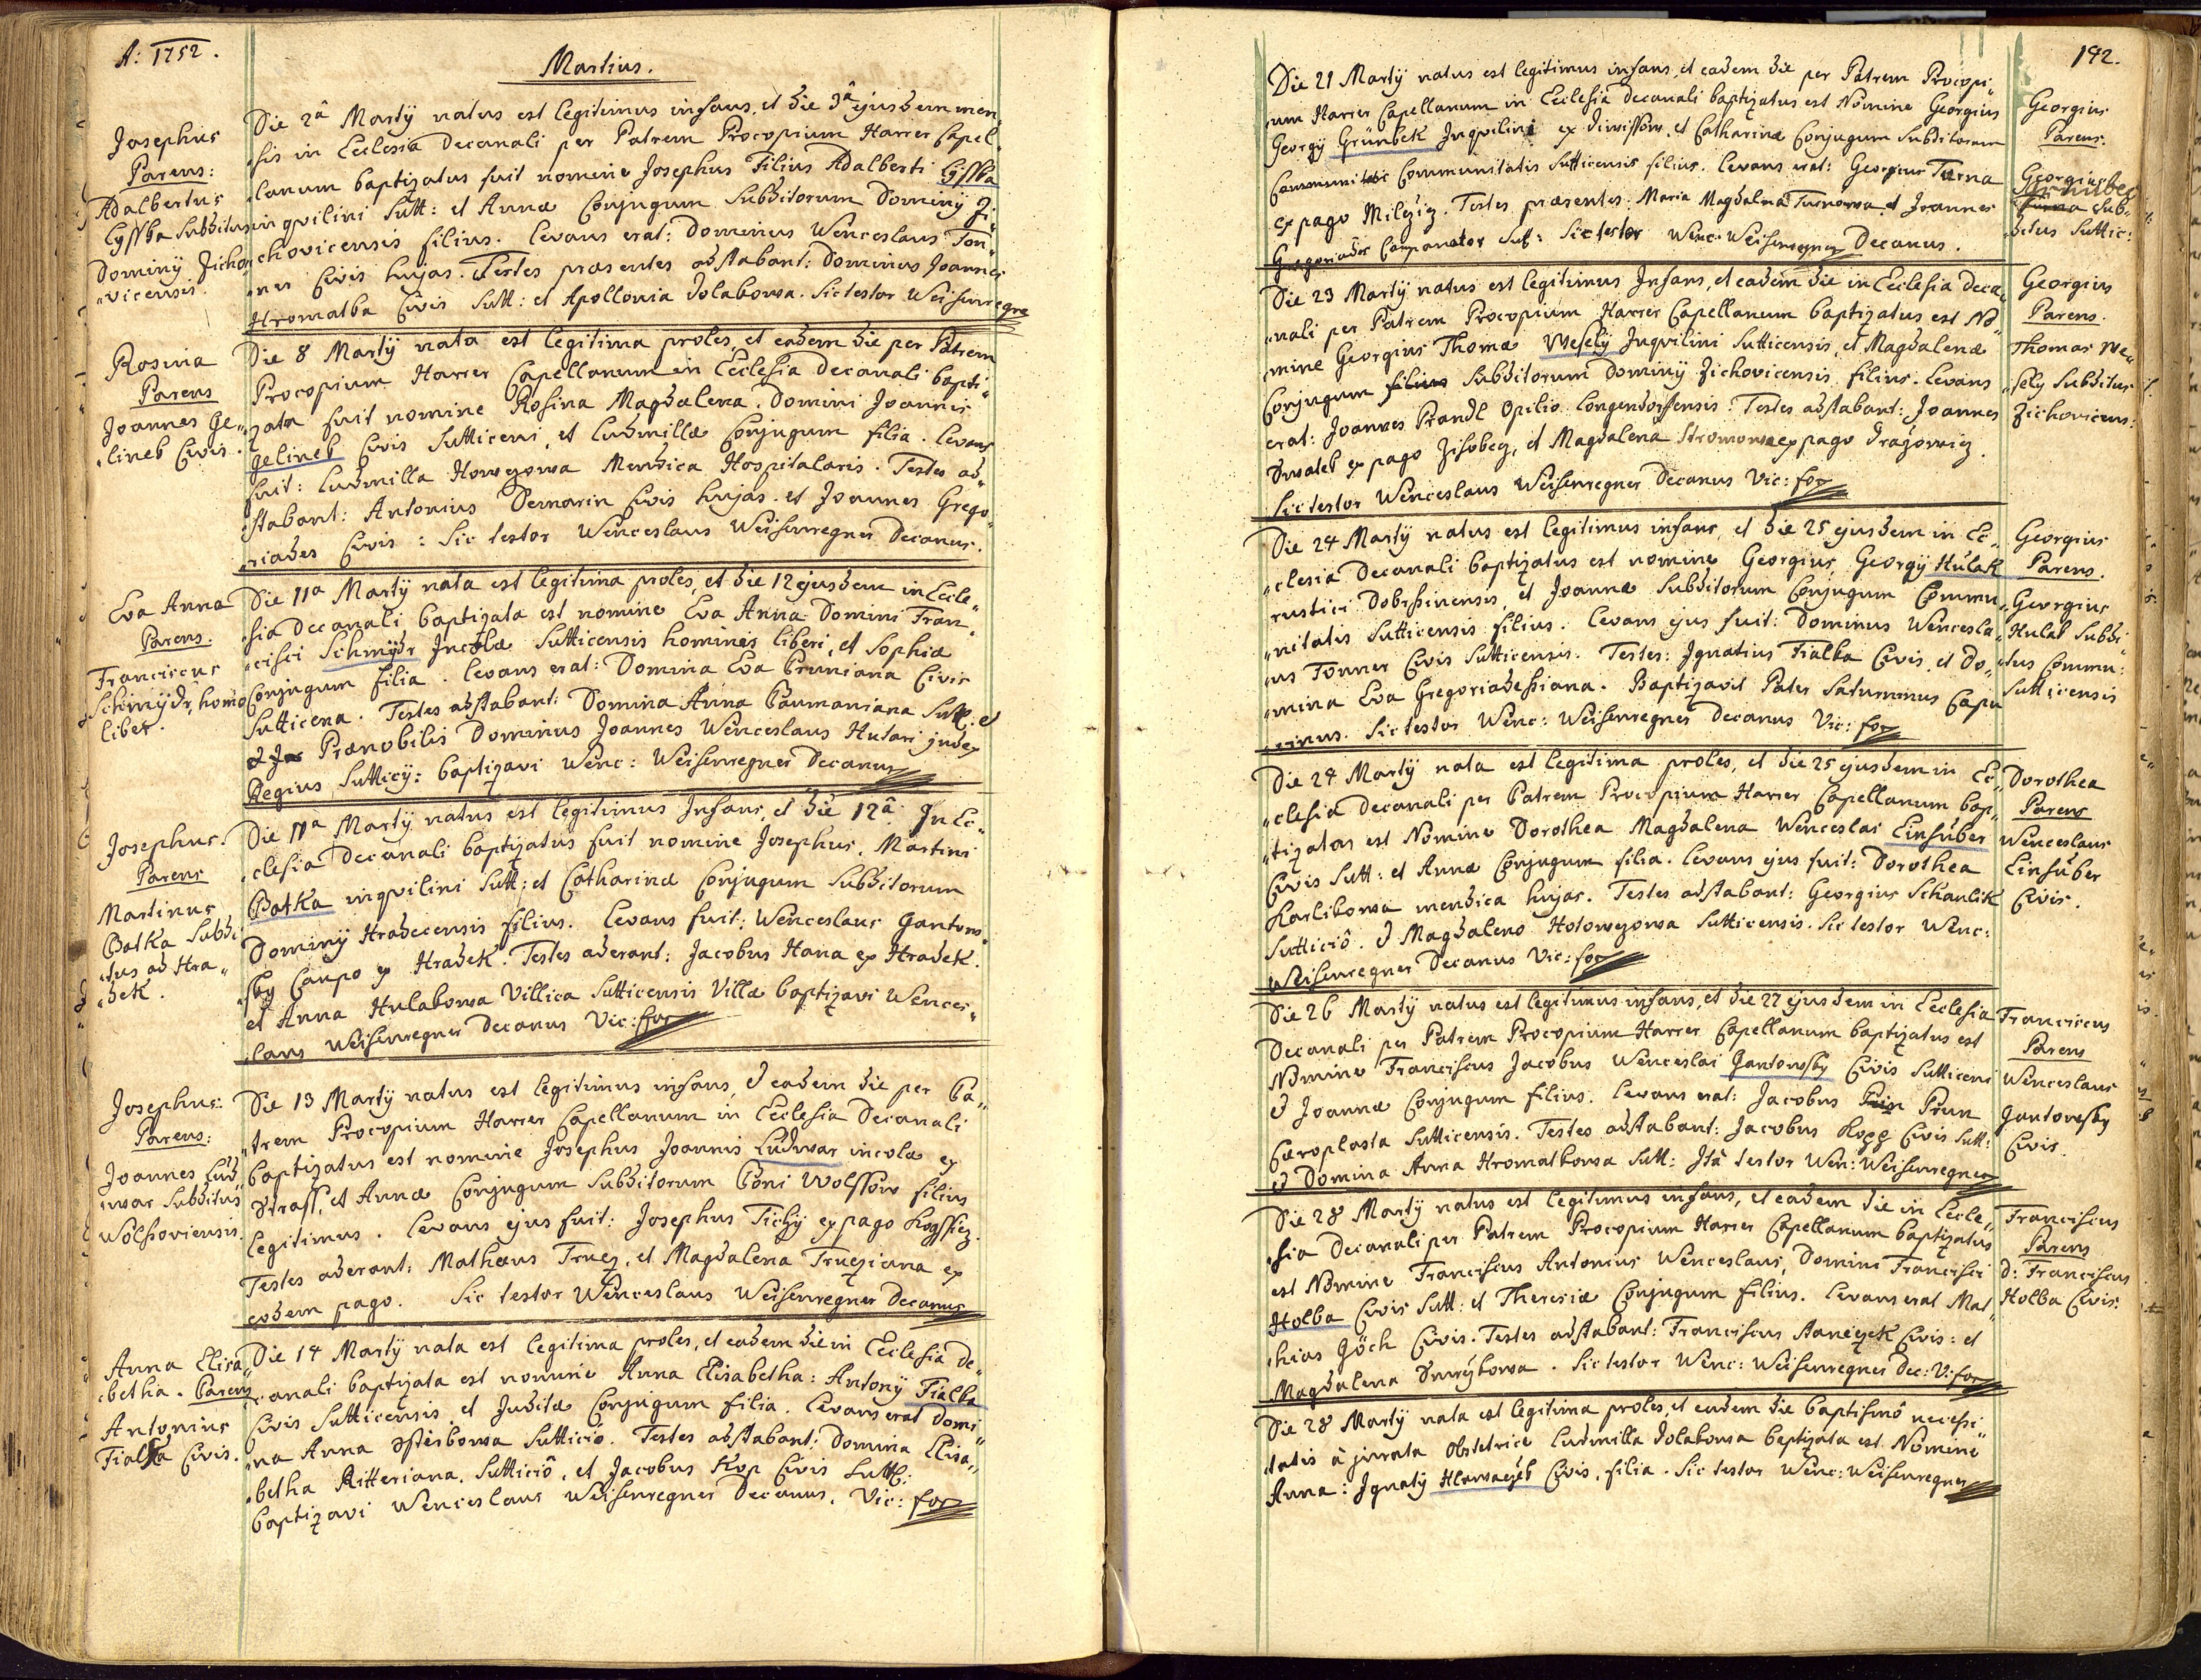 A: 1752.
Martius.
Josephus
Parens:
Adalbertus
Lysska Subditus
Dominÿ Zicho
vicensis.
Die 2â Martÿ natus est legitimus infans, et die 3â ejusdem men„
„sis in Ecclesia Decanali per Patrem Procopium Harrer Capel„
lanum baptizatus fuit nomine Josephus Filius Adalberti Lysska
inqvilini Sutt: et Annæ Conjugum Subditorum Dominÿ Zi„
chovicensis filius. Levans erat: Dominus Wenceslaus Ton„
„ner Civis hujas. Testes præsentes adstabant: Dominus Joannes
Hromatka Civis Sutt: et Apollonia Dolakowa. Sic testor Weisenregne
Rosina
Parens
Joannes Ge„
„linek Civis.
Die 8 Martÿ nata est legitima proles, et eadem die per Patrem
Procopium Harrer Capellanum in Ecclesia Decanali bapti„
zata fuit nomine Rosina Magdalena. Domini Joannis
Gelinek Civis Sutticeni, et Ludmillæ Conjugum filia. Levans
fuit: Ludmilla Howezowa Mendica Hospitalaris. Testes ad„
„stabant: Antonius Dernarin Civis hujas. et Joannes Grego„
„riades Civis: Sic testor Wenceslaus Weisenregner Decanus.
Eva Anna
Parens:
Franciscus
Schmÿdr, homo
liber.
Die 11a Martÿ nata est legitima proles, et die 12 ejusdem in Eccle„
„sia Decanali baptizata est nomine Eva Anna Domini Fran„
„cisci Schmÿdr Incolæ Sutticensis hominis liberi, et Sophiæ
Conjugum filia. Levans erat: Domina Eva Pruniana Civis
Sutticena. Testes adstabant: Domina Anna Paumaniana Sutt: et
Prænobilis Dominus Joannes Wenceslaus Hutari judex
Regius Sutticÿ: baptizavi Wenc: Weisenregner Decanus
Josephus.
Parens
Martinus
Batka Subdi
„tus ad Hra„
„dek.
Die 11a Martÿ natus est legitimus Infans, et die 12â. In Ec„
„clesia Decanali baptizatus fuit nomine Josephus. Martini
Batka inqvilini Sutt: et Catharinæ Conjugum Subditorum
Dominÿ Hradecensis filius. Levans fuit: Wenceslaus Gantow„
„sky Caupo ex Hradek. Testes aderant: Jacobus Hana ex Hradek.
et Anna Hulakowa Villica Sutticensis Villæ baptizavi Wences„
„laus Weisenregner Decanus Vic: for
Josephus:
Parens:
Joannes Lud„
„war Subditus
Wolfsoviensis.
Die 13 Martÿ natus est legitimus infans, et eadem die per Pa„
„trem Procopium Harrer Capellanum in Ecclesia Decanali
baptizatus est nomine Josephus Joannis Ludwar incolæ ex
Strass, et Annæ Conjugum Subditorum Boni Wolffow filius
legitimus. Levans ejus fuit: Josephus Tichÿ ex pago
Testes aderant: Mathæus Truez, et Magdalena Trueziana ex
eodem pago. Sic testor Wenceslaus Weisenregner Decanus
Anna Elisa„
„betha. Parens
Antonius
Fialka Civis.
Die 14 Martÿ nata est legitima proles, et eadem die in Ecclesia De„
„canali baptizata est nomine Anna Elisabetha: Antonÿ Fialka
Civis Sutticensis, et Juditæ Conjugum filia. Levans erat Domi„
„na Anna Suttició. Testes adstabant: Domina Elisa„
„betha Ritteriana. Sutticiô, et Jacobus Kop Civis Sutt:
baptizavi Wenceslaus Weisenregner Decanus. Vic: for
192.
Die 21 Martÿ natus est legitimus infans, et eadem die per Patrem Procopi„
„um Harrer Capellanum in Ecclesia Decanali baptizatus est Nomine Georgius
Georgÿ Grünbek Inqvilini ex et Catharinæ Conjugum Subditorum
Communitatis Sutticensis filius. Levans erat: Georgius Turna
ex pago Milcziz. Testes præsentes: Maria Magdalena Turnowa, et Joannes
Gregoriades Campanator Sutt: Sic testor Wenc: Weisenregner Decanus.
Georgius
Parens.
Georgius
Grünbeg
Turna Sub„
„ditus Suttic:
Die 23 Martÿ natus est legitimus Infans, et eadem die in Ecclesia Deca„
„nali per Patrem Procopium Harrer Capellanum baptizatus est No„
„mine Georgius Thomæ Weselÿ Inqvilini Sutticensis, et Magdalenæ
Conjugum filius Subditorum Dominÿ Zichovicensis filius. Levans
erat: Joannes Prandl Opilio Longendorfensis: Testes adstabant: Joannes
Swatek ex pago Zihobez, et Magdalena Stromowa ex pago Drazowiz.
Sic testor Wenceslaus Weisenregner Decanus Vic: for
Georgius
Parens.
Thomas We„
„sely Subditus
Zichovicens:
Die 24 Martÿ natus est legitimus infans, et die 25 ejusdem in Ec„
„clesia Decanali baptizatus est nomine Georgius, Georgÿ Hulak
rustici Dobrsinensis, et Joannæ Subditorum Conjugum Commu„
„nitatis Sutticensis filius. Levans ejus fuit: Dominus Wencesla„
„us Tonner Civis Sutticensis. Testes: Ignatius Fialka Civis, et Do„
„mina Eva Gregoriadessiana. Baptizavit Pater Saturninus Capu
„cinus. Sic testor Wenc: Weisenregner Decanus Vic: for
Georgius
Parens.
Georgius
Hulak Subdi
„tus Commu:
Sutticensis
Die 24 Martÿ nata est legitima proles, et die 25 ejusdem in Ec„
„clesia Decanali per Patrem Procopium Harrer Capellanum bap„
„tizata est Nomine Dorothea Magdalena Wenceslai Einsüber
Civis Sutt: et Annæ Conjugum filia. Levans ejus fuit: Dorothea
Karlikowa mendica hujas. Testes adstabant: Georgius Schanlik
Sutticiô. et Magdalena Holowezowa Sutticensis. Sic testor Wenc:
Weisenregner Decanus Vic: for
Dorothea
Parens
Wenceslaus
Einsüber
Civis.
Die 26 Martÿ natus est legitimus infans, et die 27 ejusdem in Ecclesia
Decanali per Patrem Procopium Harrer Capellanum baptizatus est
Nomine Franciscus Jacobus Wenceslai Gantowsky Civis Sutticeni
et Joannæ Conjugum filius. Levans erat: Jacobus Prun
Cæroplasta Sutticensis. Testes adstabant: Jacobus Civis Sutt:
et Domina Anna Hromatkowa Sutt: Ità testor Wen: Weisenregner
Franciscus
Parens
Wenceslaus
Gantowsky
Civis.
Die 28 Martÿ natus est legitimus infans, et eadem die in Eccle„
„sia Decanali per Patrem Procopium Harrer Capellanum baptizatus
est Nomine Franciscus Antonius Wenceslaus, Domini Francisci
Holba Civis Sutt: et Theresiæ Conjugum filius. Levans erat Mat„
„hias Jöch Civis. Testes adstabant: Franciscus Civis: et
Magdalena. Sic testor Wenc: Weisenregner Dec: V: for
Franciscus
Parens
D: Franciscus
Holba Civis.
Die 28 Martÿ nata est legitima proles, et eadem die baptismô necessi„
„tatis à jurata Obstetrice Ludmilla Dolakowa baptizata est Nomine
Anna: Ignatÿ Hlawaczek Civis, filia. Sic testor Wenc: Weisenregner